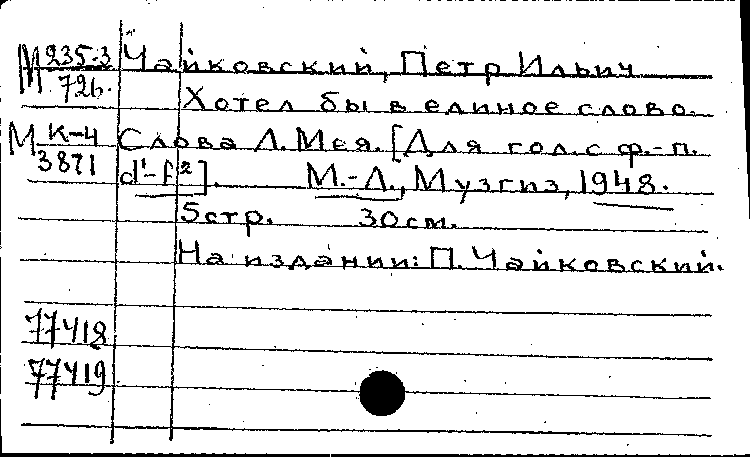 М 235-3 Чайковский, Петр Ильич
726. Хотел бы в единое слово.
М К-4 Слова Л. Мея. [Для гол. с ф.-п.
3871 d¹-f²]. М.-Л., Музгиз, 1948.
5 стр. 30 см.
На издании: П. Чайковский.
77418
77419